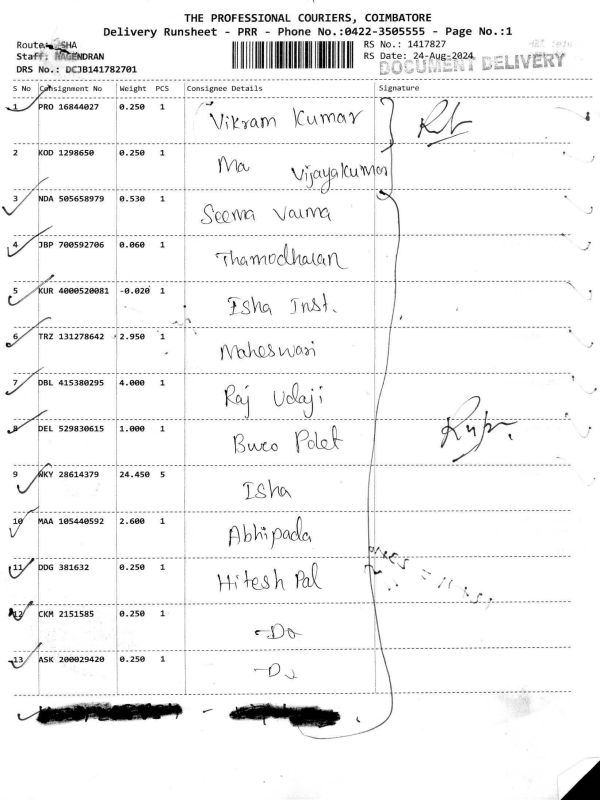 THE PROFESSIONAL COURIERS, COIMBATORE
Delivery Runsheet - PRR - Phone No.:0422-3505555 - Page No.:1
Route: ISHA
RS No.: 1417827
Staff: NAGENDRAN
RS Date: 24-Aug-2024
DRS No.: DCJB141782701
DOCUMENT DELIVERY
S No Consignment No Weight PCS Consignee Details Signature
1 PRO 16844027 0.250 1 Vikram Kumar
2 KOD 1298650 0.250 1 Ma Vijayakumar
3 NDA 505658979 0.530 1 Seema Varma
4 JBP 700592706 0.060 1 Thamodharan
5 KUR 4000520081 -0.020 1 Isha Inst.
6 TRZ 131278642 2.950 1 Maheswari
7 DBL 415380295 4.000 1 Raj Udaji
8 DEL 529830615 1.000 1 Buro Polet
9 NKY 28614379 24.450 5 Isha
10 MAA 105440592 2.600 1 Abhipada
11 DDG 381632 0.250 1 Hitesh Pal
12 CKM 2151585 0.250 1 -Do
13 ASK 200029420 0.250 1 -Do